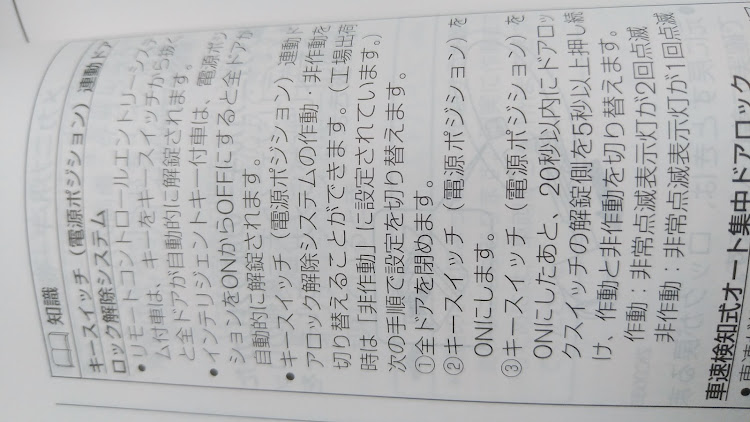 知識
キースイッチ（電源ポジション）連動ドア
ロック解除システム
●リモートコントロールエントリーシステ
ム付車は、キーをキースイッチから抜く
と全ドアが自動的に解錠されます。
●インテリジェントキー付車は、電源ポジ
ションをONからOFFにすると全ドアが
自動的に解錠されます。
●キースイッチ（電源ポジション）連動ド
アロック解除システムの作動・非作動を
切り替えることができます。（工場出荷
時は「非作動」に設定されています。）
次の手順で設定を切り替えます。
①全ドアを閉めます。
②キースイッチ（電源ポジション）を
ONにします。
③キースイッチ（電源ポジション）を
ONにしたあと、20秒以内にドアロッ
クスイッチの解錠側を5秒以上押し続
け、作動と非作動を切り替えます。
作動：非常点滅表示灯が2回点滅
非作動：非常点滅表示灯が1回点滅
車速検知式オート集中ドアロック